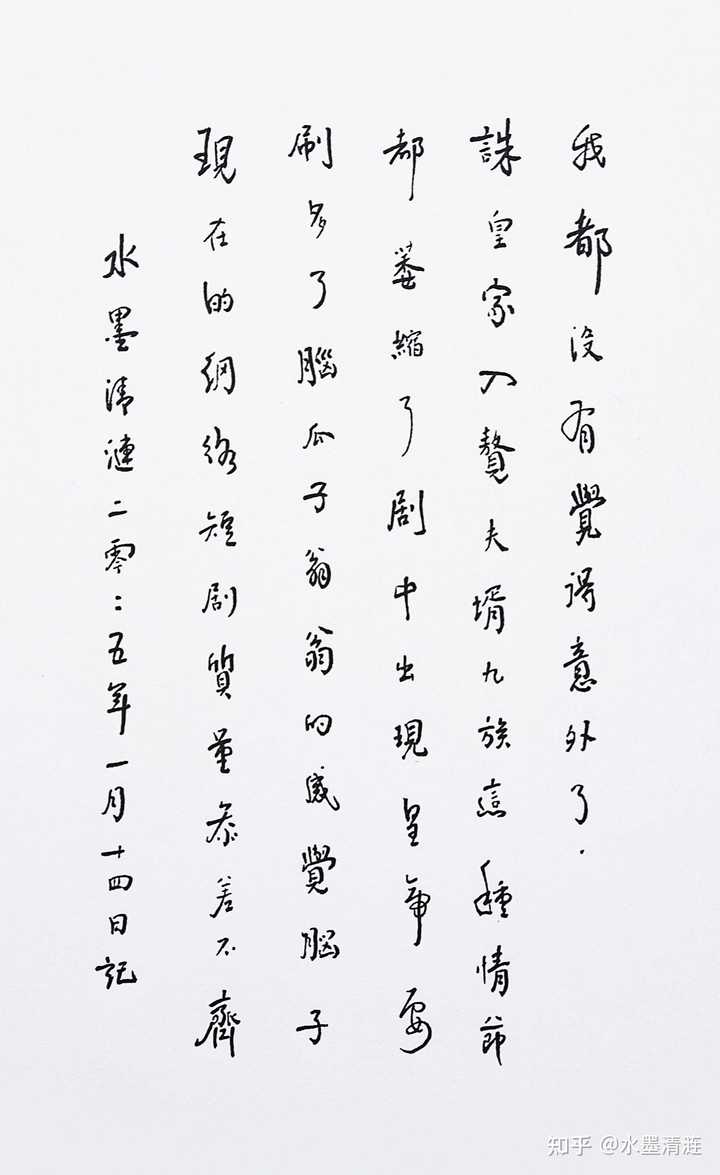 現在的網絡短剧質量参差不齊
刷多了腦瓜子翁翁的感覺腦子
都萎縮了剧中出現皇帝要
誅皇家入贅夫壻九族這種情節
我都没有覺得意外了.
水墨清漣二零二五年一月十四日記
知乎 @水墨清涟